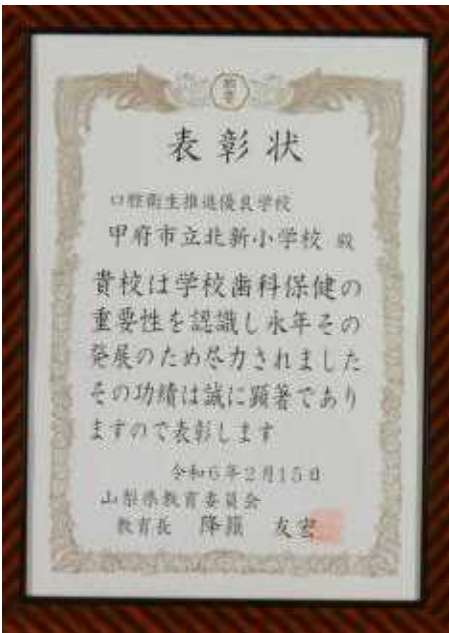 表彰状
口腔衛生推進優良学校
甲府市立北新小学校 殿
貴校は学校歯科保健の
重要性を認識し永年その
発展のため尽力されました
その功績は誠に顕著であり
ますので表彰します
令和6年2月15日
山梨県教育委員会
教育長 降籏 友宏